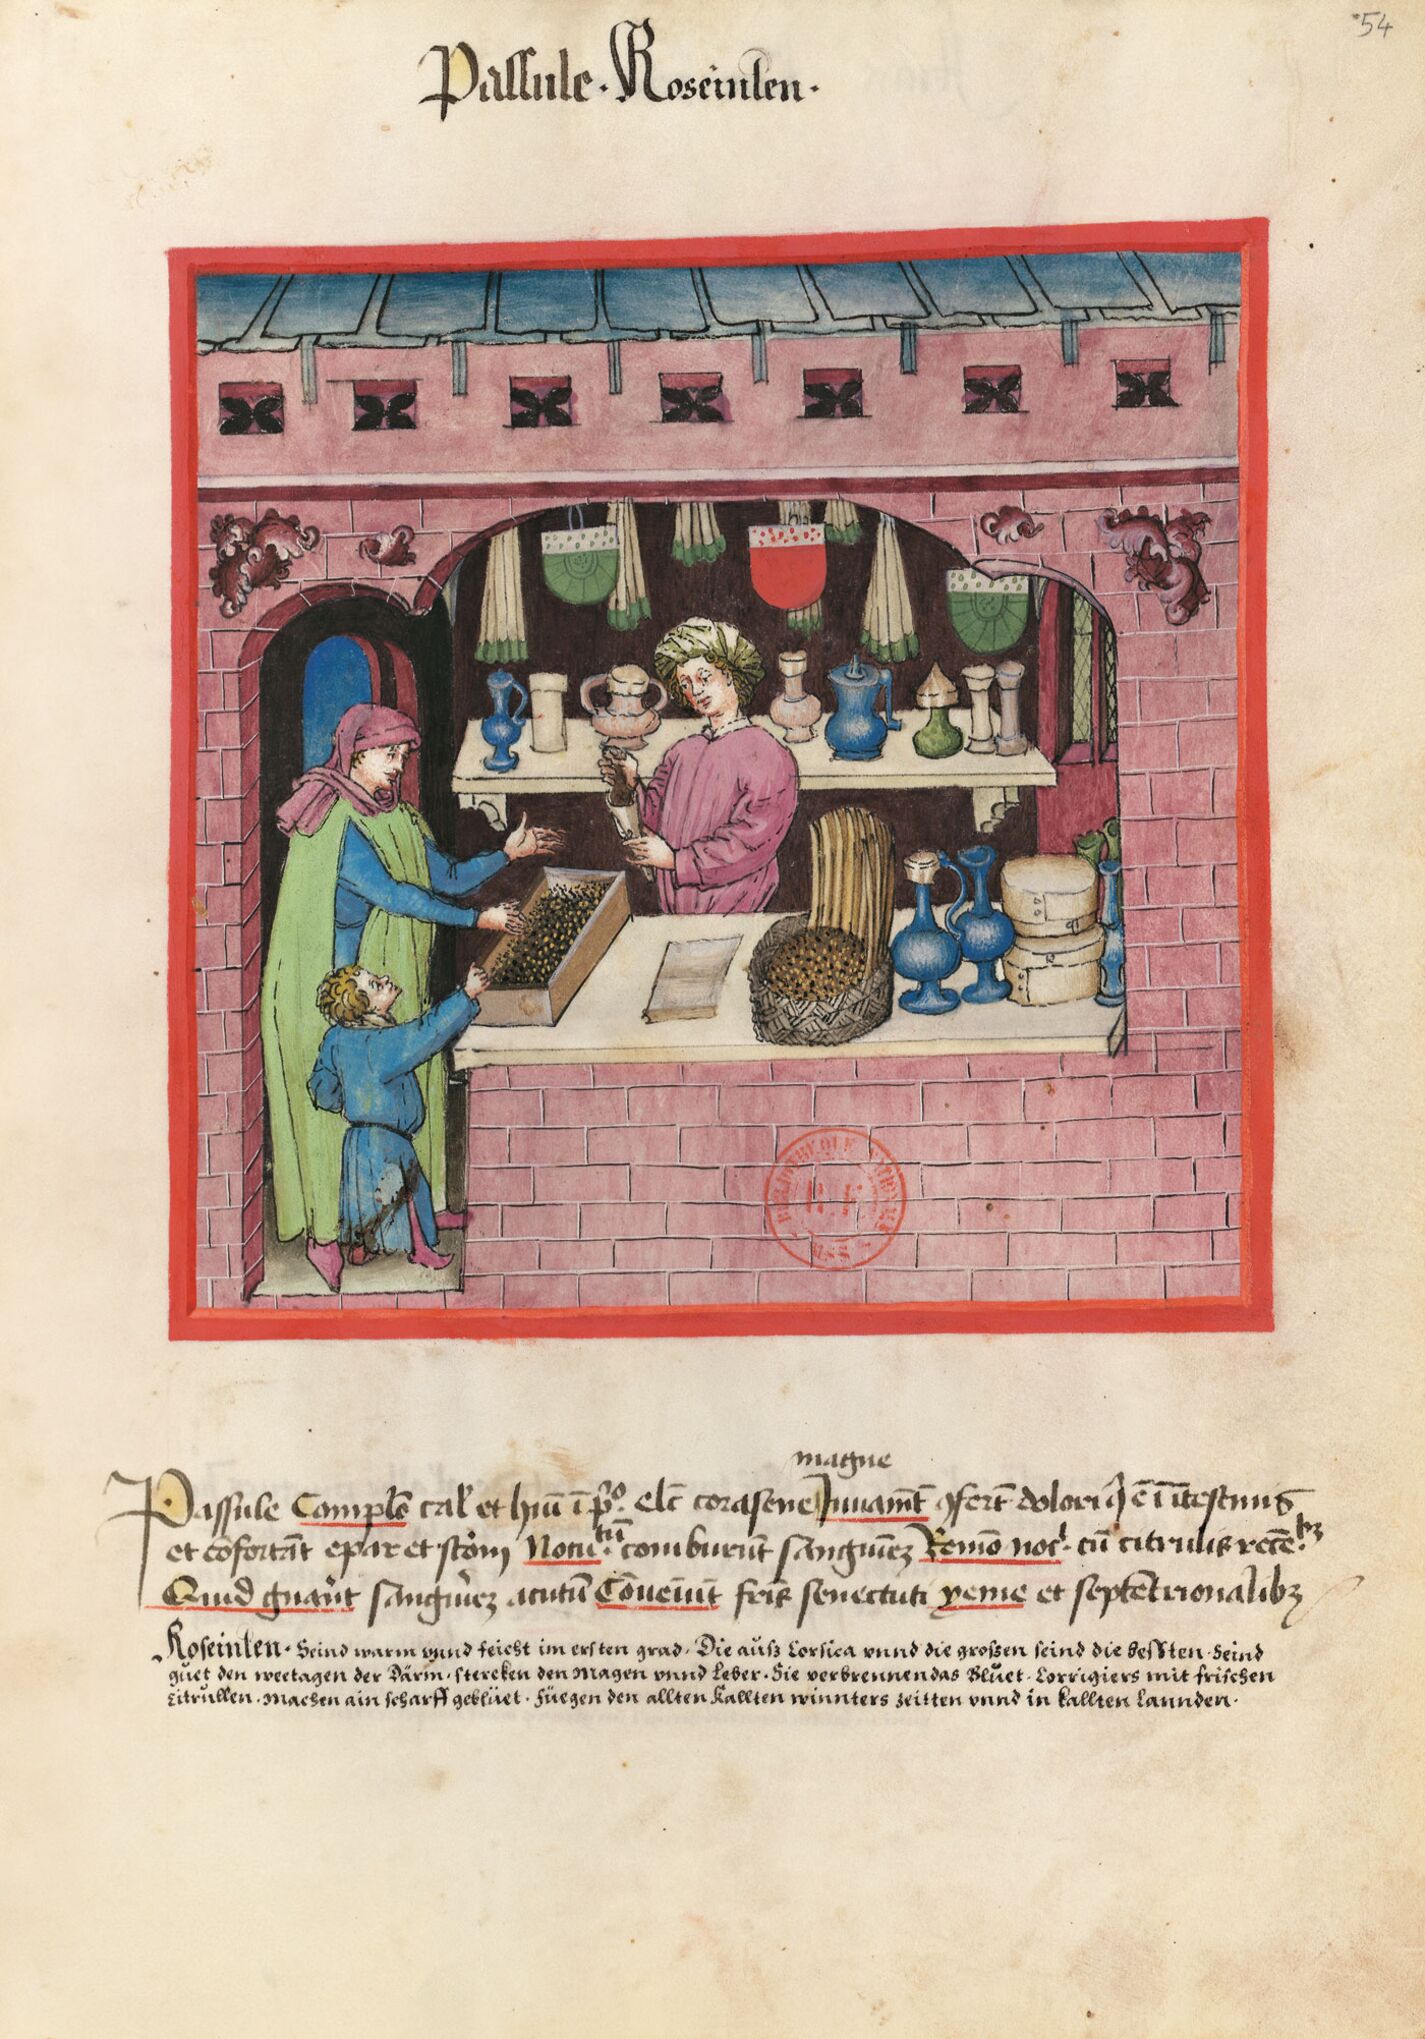 54
Passule · Roseinlen ·
magne
Passule Complō cal' et hūi ī p°. elc̄ corasene Juuam̄t ꝯfert dolori q̄ ē ī ītestinis
et cōfortāt epar et stōm Nocu.tū comburūt sanguinez Remō noc' · cū citrulis recē.bz
Quid gnāt sanguīez acutū Cōueīūt fris senectuti yeme et septētrionalibz
Roseinlen · Seind warm vnnd feicht im ersten grad · Die auß Corsica vnnd die großen seind die bessten · Seind
guet den weetagen der Därm · stercken den Magen vnnd Leber · Sie verbrennen das Blůet · Corrigiers mit frischen
Citrullen · Machen ain scharff geblüet · Füegen den allten Kallten winnters zeitten vnnd in kallten Lannden ·